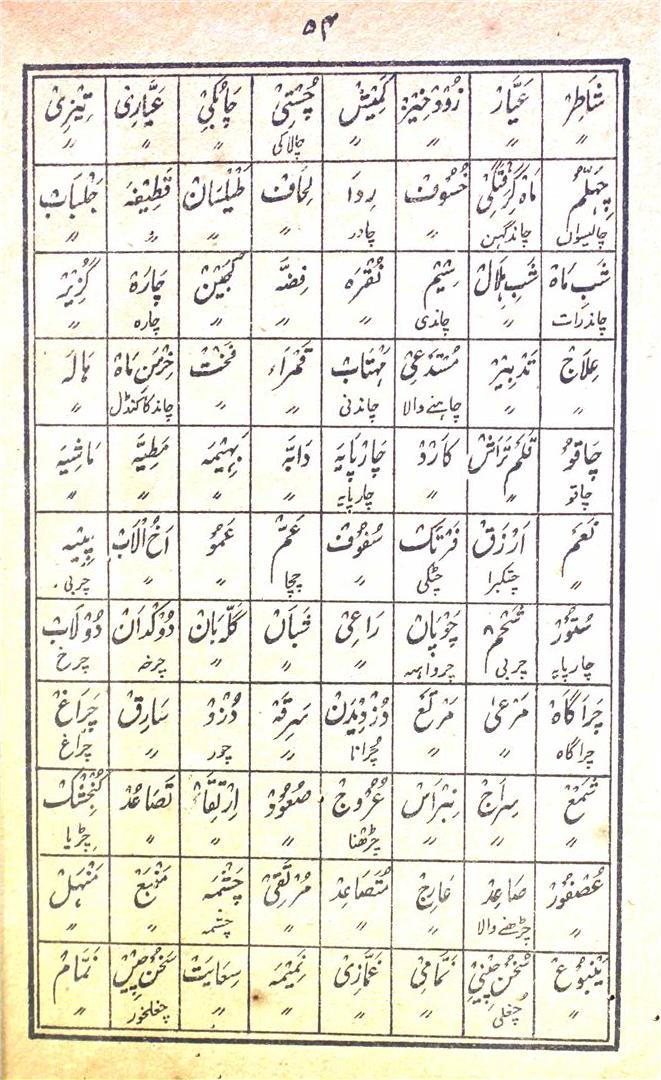 ۵۴
شَاطِرْ عَیَّارْ زُوْد خِیْزْ کَمِیْشْ چُسْتِیْ چَابُکِیْ عَیَّارِیْ تِیْزِیْ
〃 〃 〃 〃 چالاکی 〃 〃 〃
چِہِلُّمْ مَاہ گِرِفْتَگِیْ خُسُوْفْ رِدَا لِحَافْ طَیْلَسَانْ قَطِیْفَہ جَلْبَابْ
چالیسواں چاندگہن 〃 چادر 〃 〃 〃 〃
شَبِ مَاہ شَبِ ہِلَالْ سِیْم نُقْرَہ فِضَّہ لُجَیْن چَارَہ گُزِیْر
چاندرات 〃 چاندی 〃 〃 〃 چارہ 〃
عِلَاجْ تَدْبِیْر مُسْتَدْعِیْ مَہْتَابْ قَمْرَاء فَخْتْ خِرْمَنِ مَاہ ہَالَہ
〃 〃 چاہنے والا چاندنی 〃 〃 چاند کا کنڈل 〃
چَاقُو قَلَمْ تَرَاشْ کَارْد چَارْپَایَہ دَابَّہ بَہِیْمَہ مَطِیَّہ مَاشِیَہ
چاقو 〃 〃 چارپایہ 〃 〃 〃 〃
نَعَمْ اَزْرَقْ سُفُوْفْ عَمّ عَمُوْ اَخُ الْاَبْ پِیْہ
〃 چتکبرا چٹکی 〃 چچا 〃 〃 چربی
سُتُوْرْ شَحْم چَوْپَانْ رَاعِیْ شَبَانْ گَلَّہ بَانْ دُوْکْدَانْ دُوْلَابْ
چارپایہ چربی چرواہہ 〃 〃 〃 چرخہ چرخ
چَرَا گَاہ مَرْعٰی مَرْتَعْ دُزْدِیْدَنْ سَرِقَہ دُزْد سَارِقْ چَرَاغْ
چراگاہ 〃 〃 چُرانا 〃 چور 〃 چراغ
شَمْعْ سِرَاجْ نِبْرَاسْ عُرُوْجْ صُعُوْدْ اِرْتِقَاءْ تَصَاعُدْ کُنْجِشْک
〃 〃 〃 چڑھنا 〃 〃 〃 چڑیا
عُصْفُوْرْ صَاعِدْ عَارِجْ مُتَصَاعِدْ مُرْتَقِیْ چَشْمَہ مَنْبَعْ مَنْہَلْ
〃 چڑھنے والا 〃 〃 〃 چشمہ 〃 〃
یَنْبُوْعْ سُخُنْ چِیْنِیْ نَمَّامِیْ غَمَّازِیْ نَمِیْمَہ سِعَایَتْ سُخُنْ چِیْں نَمَّامْ
〃 چغلی 〃 〃 〃 〃 چغلخور 〃